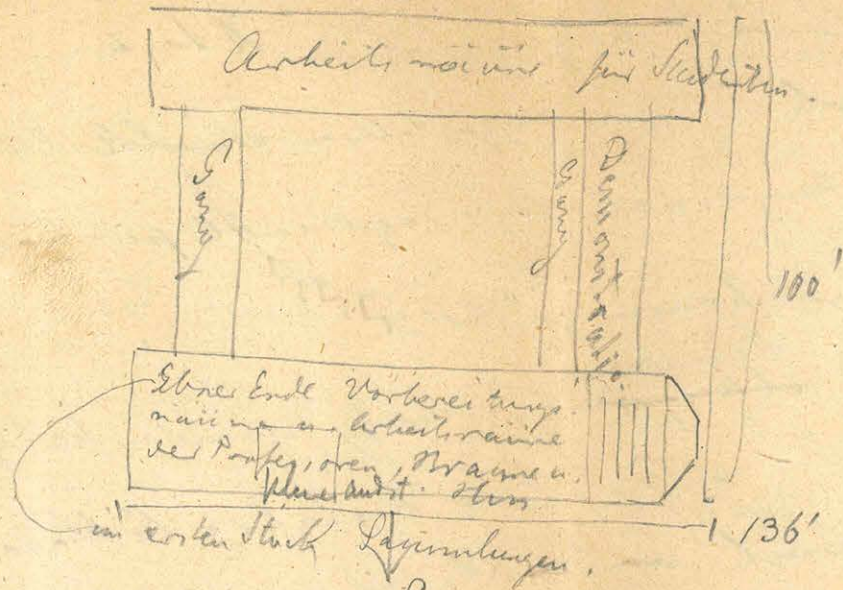 Arbeitsräume für Studenten.
Gang
Gang
Demonstratio.
100'
Ebner Erde Vorbereitungs-
räume u. Arbeitsräume
der Professoren,
136'
im ersten Stock Sammlungen.